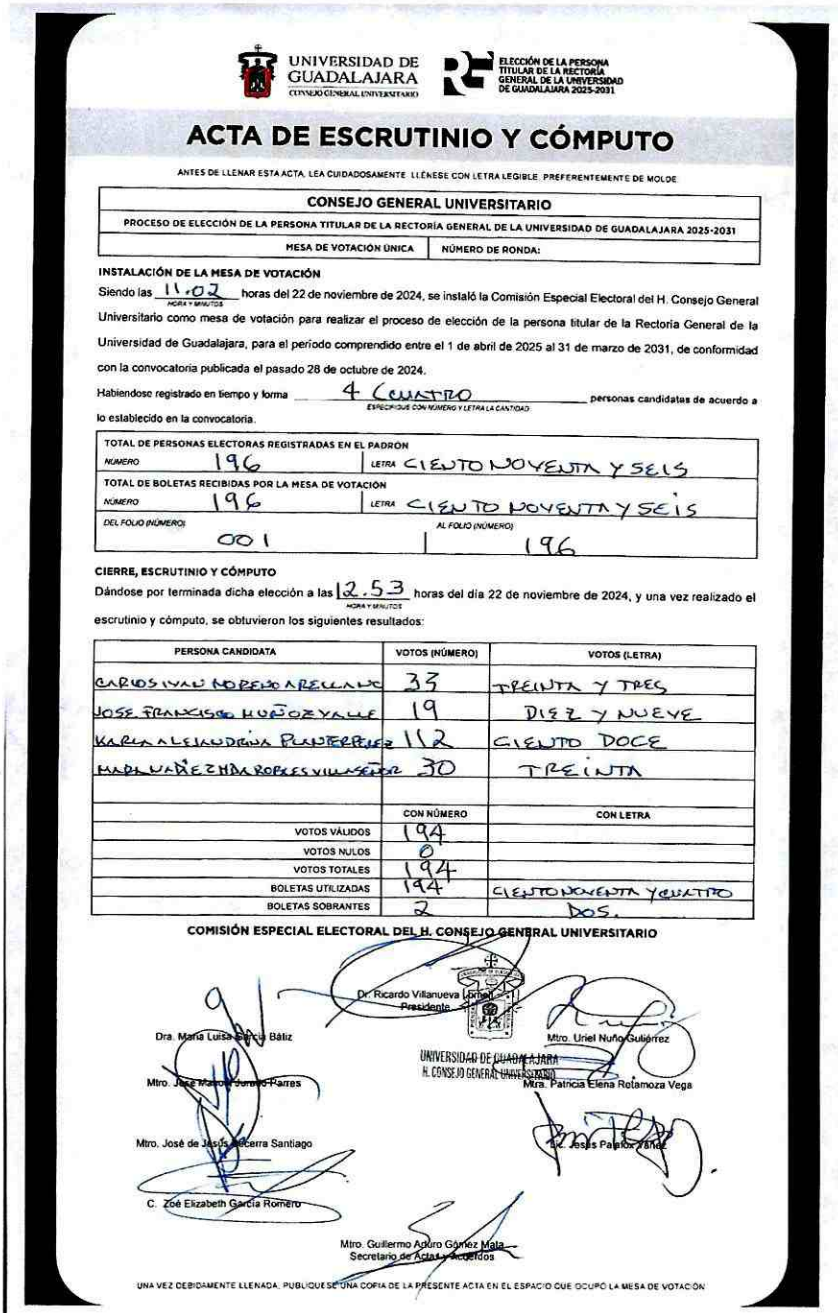 UNIVERSIDAD DE
GUADALAJARA
CONSEJO GENERAL UNIVERSITARIO
RG
ELECCIÓN DE LA PERSONA
TITULAR DE LA RECTORÍA
GENERAL DE LA UNIVERSIDAD
DE GUADALAJARA 2025-2031
ACTA DE ESCRUTINIO Y CÓMPUTO
ANTES DE LLENAR ESTA ACTA, LEA CUIDADOSAMENTE. LLÉNESE CON LETRA LEGIBLE, PREFERENTEMENTE DE MOLDE
CONSEJO GENERAL UNIVERSITARIO
PROCESO DE ELECCIÓN DE LA PERSONA TITULAR DE LA RECTORÍA GENERAL DE LA UNIVERSIDAD DE GUADALAJARA 2025-2031
MESA DE VOTACIÓN ÚNICA NÚMERO DE RONDA:
INSTALACIÓN DE LA MESA DE VOTACIÓN
Siendo las 11.02 horas del 22 de noviembre de 2024, se instaló la Comisión Especial Electoral del H. Consejo General
HORA Y MINUTOS
Universitario como mesa de votación para realizar el proceso de elección de la persona titular de la Rectoría General de la
Universidad de Guadalajara, para el período comprendido entre el 1 de abril de 2025 al 31 de marzo de 2031, de conformidad
con la convocatoria publicada el pasado 28 de octubre de 2024.
Habiendose registrado en tiempo y forma 4 (CUATRO personas candidatas de acuerdo a
ESPECIFIQUE CON NÚMERO Y LETRA LA CANTIDAD
lo establecido en la convocatoria.
TOTAL DE PERSONAS ELECTORAS REGISTRADAS EN EL PADRÓN
NÚMERO 196 LETRA CIENTO NOVENTA Y SEIS
TOTAL DE BOLETAS RECIBIDAS POR LA MESA DE VOTACIÓN
NÚMERO 196 LETRA CIENTO NOVENTA Y SEIS
DEL FOLIO (NÚMERO) AL FOLIO (NÚMERO)
001 196
CIERRE, ESCRUTINIO Y CÓMPUTO
Dándose por terminada dicha elección a las 12.53 horas del día 22 de noviembre de 2024, y una vez realizado el
HORA Y MINUTOS
escrutinio y cómputo, se obtuvieron los siguientes resultados:
PERSONA CANDIDATA VOTOS (NÚMERO) VOTOS (LETRA)
CARLOS IVAN MORENO ARELLANO 33 TREINTA Y TRES
JOSE FRANCISCO MUÑOZ VALLE 19 DIEZ Y NUEVE
KARLA ALEJANDRINA PLANTER PEREZ 112 CIENTO DOCE
ROBLES VILLASEÑOR 30 TREINTA
CON NÚMERO CON LETRA
VOTOS VÁLIDOS 194
VOTOS NULOS 0
VOTOS TOTALES 194
BOLETAS UTILIZADAS 194 CIENTO NOVENTA Y CUATRO
BOLETAS SOBRANTES 2 DOS.
COMISIÓN ESPECIAL ELECTORAL DEL H. CONSEJO GENERAL UNIVERSITARIO
Dr. Ricardo Villanueva Lomelí
Presidente
Dra. María Luisa García Báliz Mtro. Uriel Nuño Gutiérrez
UNIVERSIDAD DE GUADALAJARA
H. CONSEJO GENERAL UNIVERSITARIO
Mtro. José Manuel Jurado Parres Mtra. Patricia Elena Retamoza Vega
Mtro. José de Jesús Becerra Santiago Lic. Jesús Palafox Yáñez
C. Zoé Elizabeth García Romero
Mtro. Guillermo Arturo Gómez Mata
Secretario de Actas y Acuerdos
UNA VEZ DEBIDAMENTE LLENADA, PUBLIQUESE UNA COPIA DE LA PRESENTE ACTA EN EL ESPACIO QUE OCUPÓ LA MESA DE VOTACIÓN